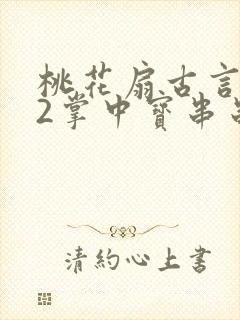 桃花扇古言
2掌中寶串
清約心上書